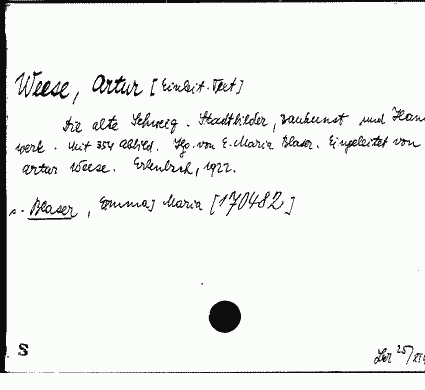 Weese, Artur [Einleit. Text]
Die alte Schweiz. Stadtbilder, Baukunst und Han
werk. Mit 354 Abbild. Hg. von E. Maria Blaser. Eingeleitet von
Artur Weese. Erlenbach, 1922.
s. Blaser, E[mma] Maria [170482]
S
25/